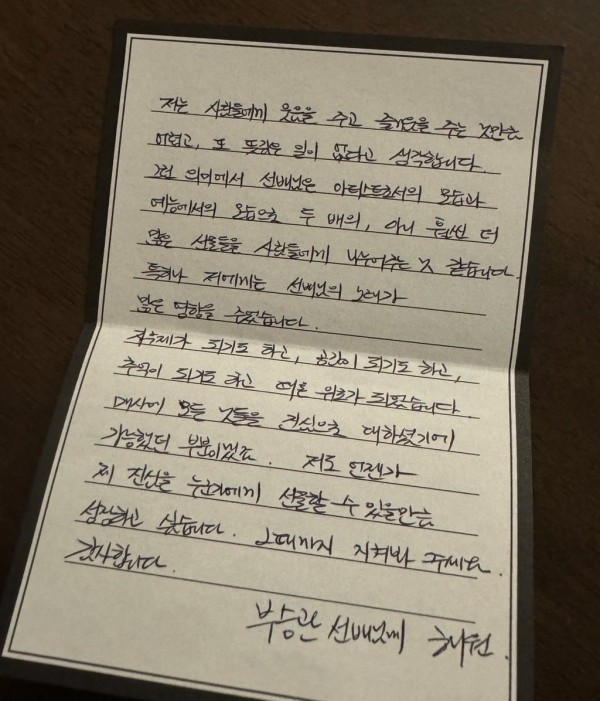 저는 사람들에게 웃음을 주고 즐거움을 주는 것만큼
어렵고, 또 뜻깊은 일이 없다고 생각합니다.
그런 의미에서 선배님은 아티스트로서의 모습과
예능에서의 모습으로 두 배의, 아니 훨씬 더
많은 선물들을 사람들에게 나누어주는 것 같습니다.
특히나 저에게는 선배님의 노래가
많은 영향을 주었습니다.
자극제가 되기도 하고, 공감이 되기도 하고,
추억이 되기도 하고 때론 위로가 되었습니다.
매사에 모든 것들을 진심으로 대하셨기에
가능했던 부분이겠죠. 저도 언젠가
제 진심을 누군가에게 선물할 수 있을만큼
성장하고 싶습니다. 그때까지 지켜봐 주세요.
감사합니다.
부승관 선배님께